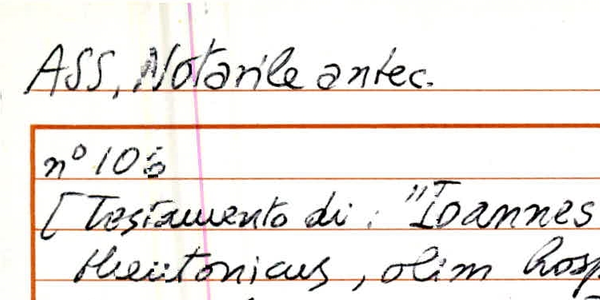 ASS, Notarile antec.
n° 106
[Testamento di: "Ioannes
theutonicus, olim hosp